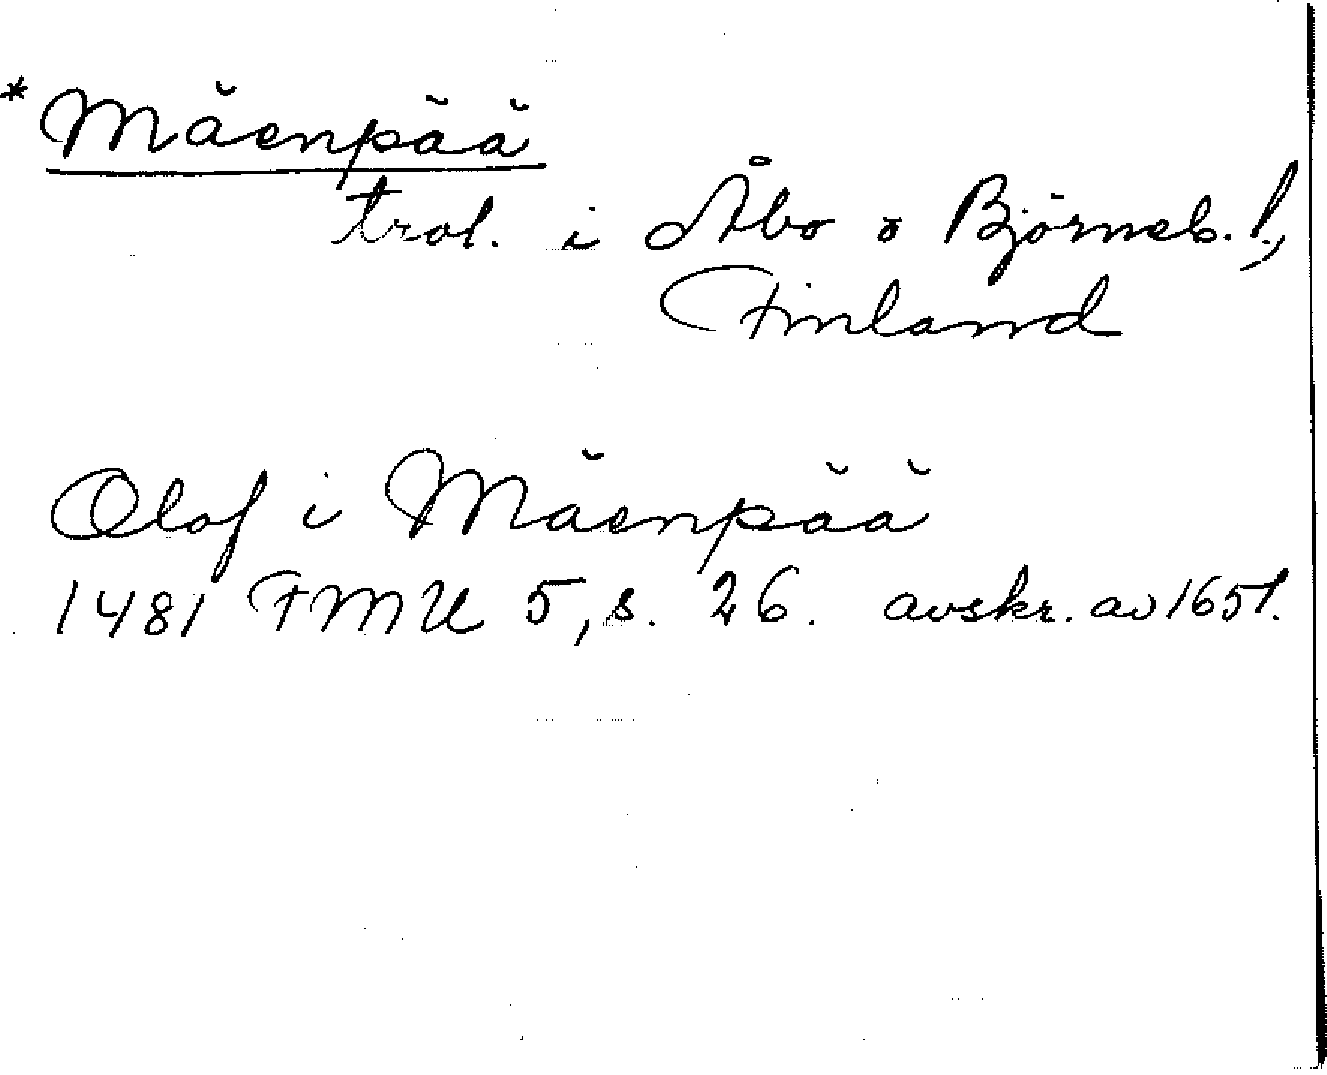 * Mäenpää
trol. i Åbo o Björneb. l.,
Finland
Olof i Mäenpää
1481 FMU 5, s. 26. avskr. av 1651.